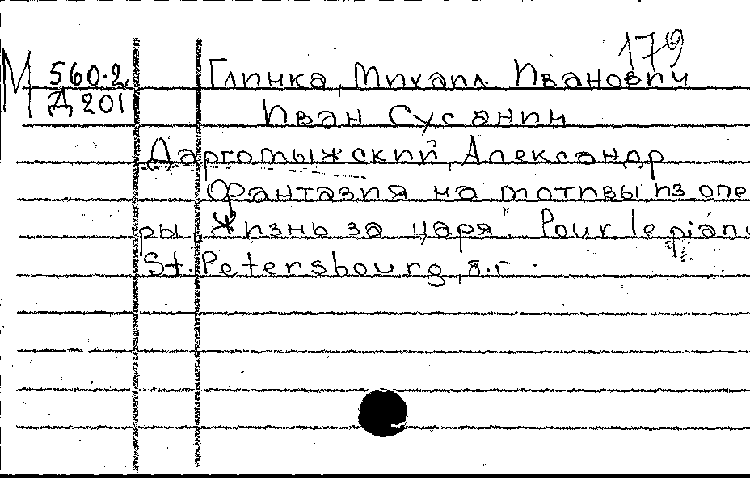 179
М 560.2 Глинка, Михаил Иванович
Д 201 Иван Сусанин
Даргомыжский, Александр
Фантазия на мотивы из опе
ры "Жизнь за царя". Pour le piano
St. Petersbourg, s.г.